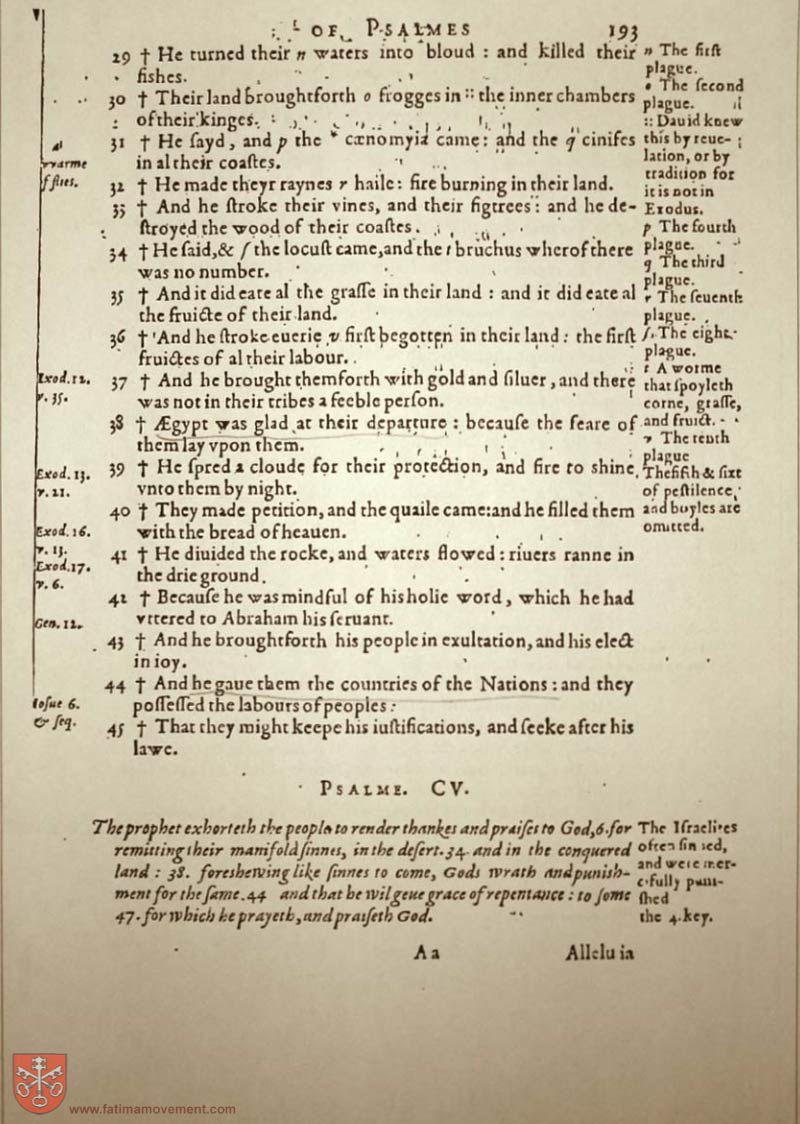 OF PSALMES 193
29 † He turned their n waters into bloud : and killed their
fiſhes.
30 † Their land broughtforth o frogges in :: the inner chambers
of their kinges.
31 † He ſayd, and p the * cœnomyia came: and the q cinifes
in al their coaſtes.
32 † He made theyr raynes r haile: fire burning in their land.
33 † And he ſtroke their vines, and their figtrees: and he de-
ſtroyed the wood of their coaſtes.
34 † He ſaid, & ſ the locuſt came, and the t bruchus wherof there
was no number.
35 † And it did eate al the graſſe in their land : and it did eate al
the fruicte of their land.
36 † And he ſtroke euerie v firſt begotten in their land: the firſt
fruictes of al their labour.
37 † And he brought themforth with gold and ſiluer, and there
was not in their tribes a feeble perſon.
38 † Ægypt was glad at their departure: becauſe the feare of
them lay vpon them.
39 † He ſpred a cloude for their protection, and fire to ſhine
vnto them by night.
40 † They made petition, and the quaile came: and he filled them
with the bread of heauen.
41 † He diuided the rocke, and waters flowed: riuers ranne in
the drie ground.
42 † Becauſe he was mindful of his holie word, which he had
vttered to Abraham his ſeruant.
43 † And he broughtforth his people in exultation, and his elect
in ioy.
44 † And he gaue them the countries of the Nations: and they
poſſeſſed the labours of peoples:
45 † That they might keepe his iuſtifications, and ſeeke after his
lawe.
n The firſt
plague.
o The ſecond
plague.
:: Dauid knew
this by reue-
lation, or by
tradition for
it is not in
Exodus.
p The fourth
plague.
q The third
plague.
r The ſeuenth
plague.
ſ The eight
plague.
t A worme
that ſpoyleth
corne, graſſe,
and fruict.
v The tenth
plague
The fifth & ſixt
of peſtilence,
and boyles are
omitted.
warme
flies.
Exod. 12.
v. 35.
Exod. 13.
v. 21.
Exod. 16.
v. 13.
Exod. 17.
v. 6.
Gen. 12.
Ioſue 6.
& ſeq.
PSALME. CV.
The prophet exhorteth the people to render thankes and praiſes to God, 6. for
remitting their manifold ſinnes, in the deſert. 34. and in the conquered
land: 38. foreſhewing like ſinnes to come, Gods wrath and puniſh-
ment for the ſame. 44 and that he wil geue grace of repentance: to ſome
47. for which he prayeth, and praiſeth God.
The Iſraelites
often ſinned,
and were mer-
cifully puni-
ſhed
the 4. key.
Aa Alleluia
www.fatimamovement.com